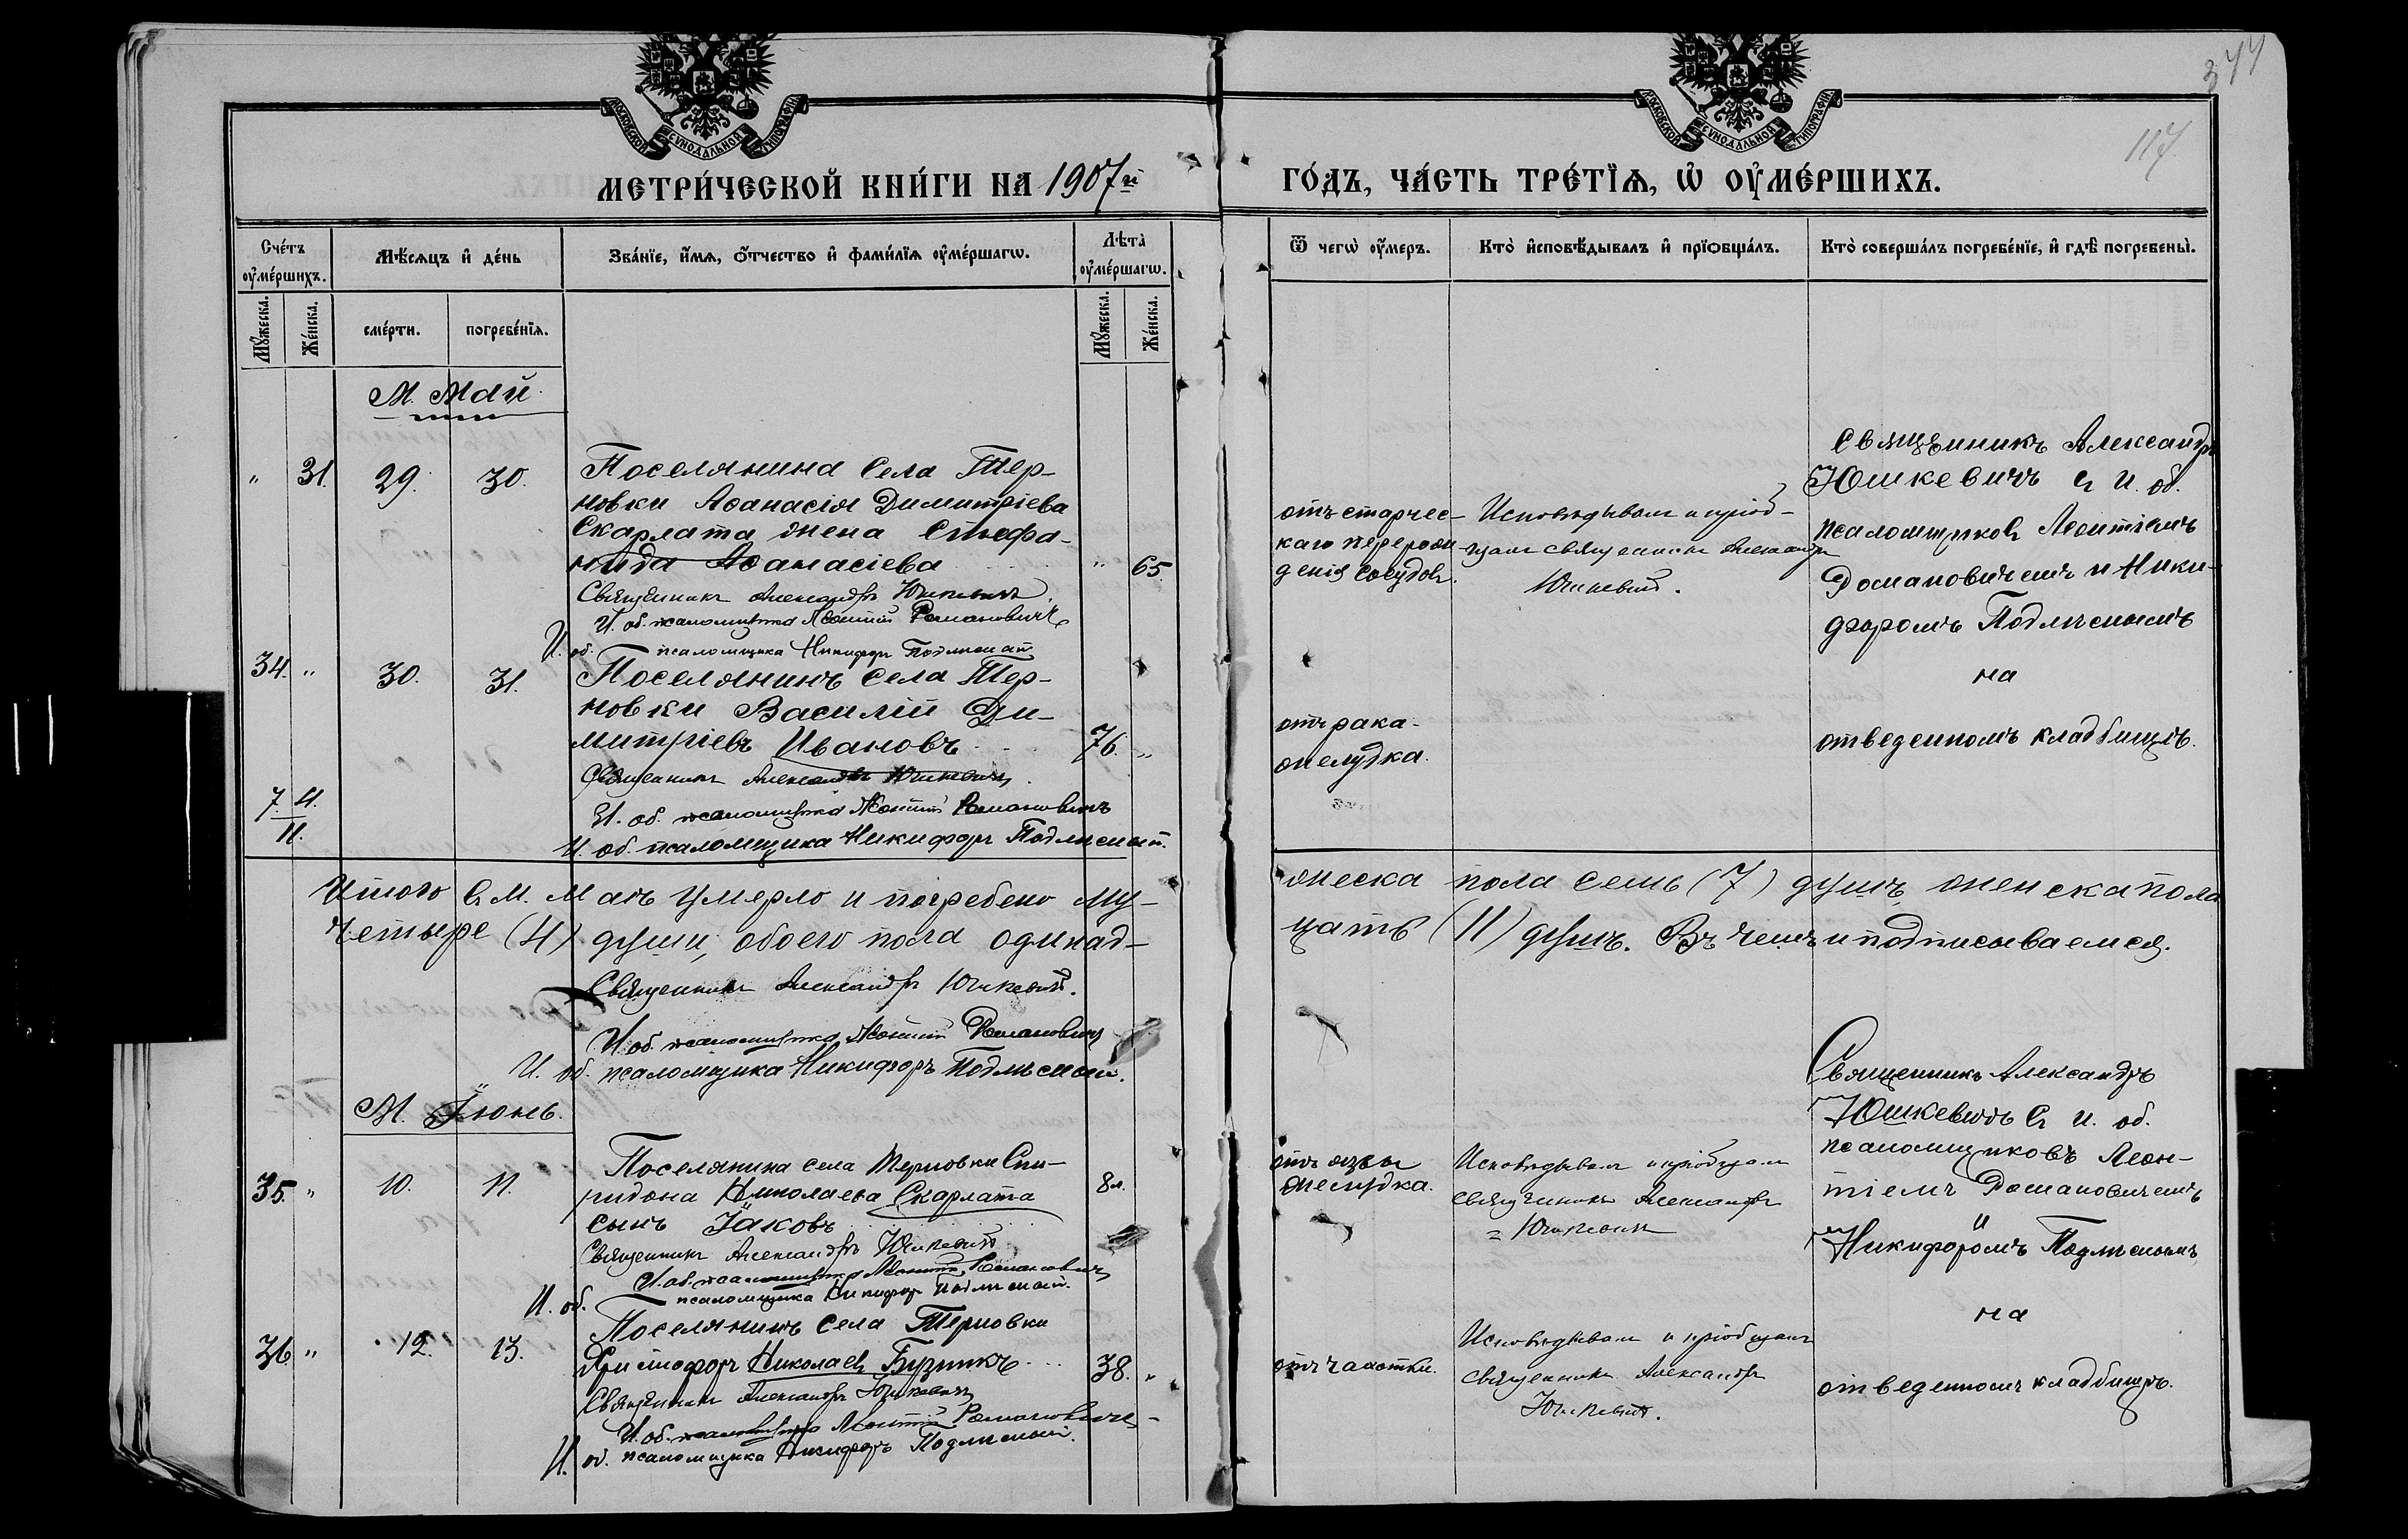 344
117
МОСКОВСКОЙ СѴНОДАЛЬНОЙ ТИПОГРАФІИ
МОСКОВСКОЙ СѴНОДАЛЬНОЙ ТИПОГРАФІИ
МЕТРИ́ЧЕСКОЙ КНИ́ГИ НА 1907й ГО́ДЪ, ЧА́СТЬ ТРЕ́ТЇѦ, Ѡ҆ ОУ҆МЕ́РШИХЪ.
Сче́тъ оу҆ме́ршихъ.
Мѣ́сѧцъ и҆ де́нь
Зва́нїе, и҆́мѧ, ѻ҆́тчество и҆ фами́лїѧ оу҆ме́ршагѡ.
Лѣ́та оу҆ме́ршагѡ.
Ѿ чегѡ̀ оу҆́меръ.
Кто̀ и҆сповѣ́дывалъ и҆ прїѡбща́лъ.
Кто̀ соверша́лъ погребе́нїе, и҆ гдѣ̀ погребены̀.
Мꙋ́жеска.
Же́нска.
сме́рти.
погребе́нїѧ.
Мꙋ́жеска.
Же́нска.
М. Май.
" 31. 29. 30.
Поселянина села Тер-
новки Аѳанасія Димитріева
Скарлата жена Стефа-
нида Аѳанасіева " 65.
Священникъ Александръ Юшкевичъ.
И. об. псаломщика Леонтій Романовичъ
И. об. псаломщика Никифоръ Подлѣсный
отъ старчес-
каго перерож-
денія сосудовъ.
Исповѣдывалъ и пріоб-
щалъ священникъ Александръ
Юшкевичъ.
Священникъ Александръ
Юшкевичъ съ И. об.
псаломщиковъ Леонтіемъ
Романовичемъ и Ники-
форомъ Подлѣснымъ
на
отведенномъ кладбищѣ.
34. " 30. 31.
Поселянинъ села Тер-
новки Василій Ди-
митріевъ Ивановъ 76. "
Священникъ Александръ Юшкевичъ.
И. об. псаломщика Леонтій Романовичъ
И. об. псаломщика Никифоръ Подлѣсный.
отъ рака
желудка.
7 4.
11.
Итого въ М. Маѣ умерло и погребено му-
жеска пола семь (7) душъ, женска пола
четыре (4) души, обоего пола одинад-
цать (11) душъ. Въ чемъ и подписываемся.
Священникъ Александръ Юшкевичъ.
И. об. псаломщика Леонтій Романовичъ
И. об. псаломщика Никифоръ Подлѣсный.
М. Іюнь.
35. " 10. 11.
Поселянина села Терновки Спи-
ридона Николаева Скарлата 8 л.
сынъ Іаковъ
Священникъ Александръ Юшкевичъ
И. об. псаломщика Леонтій Романовичъ
И. об. псаломщика Никифоръ Подлѣсный.
отъ язвы
желудка.
Исповѣдывалъ и пріобщалъ
священникъ Александръ
Юшкевичъ
Священникъ Александръ
Юшкевичъ съ И. об.
псаломщиковъ Леон-
тіемъ Романовичемъ
и
Никифоромъ Подлѣснымъ
на
отведенномъ кладбищѣ.
36. " 12. 13.
Поселянинъ села Терновки
Христофоръ Николаевъ Бузникъ 38. "
Священникъ Александръ Юшкевичъ
И. об. псаломщика Леонтій Романовичъ
И. об. псаломщика Никифоръ Подлѣсный.
отъ чахотки.
Исповѣдывалъ и пріобщалъ
священникъ Александръ
Юшкевичъ.